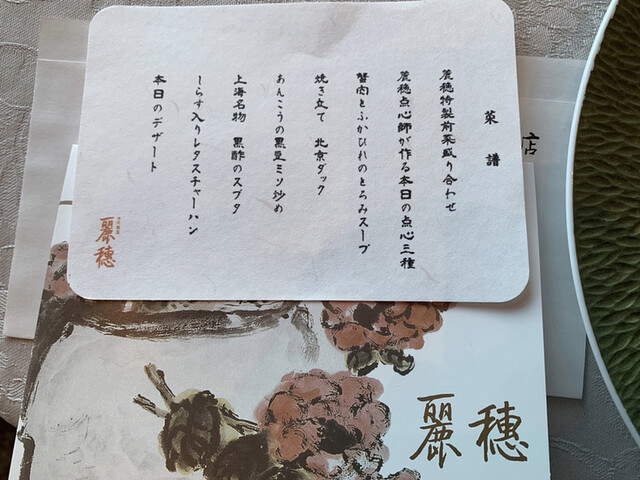 菜譜
麗穂特製前菜盛り合わせ
麗穂点心師が作る本日の点心三種
蟹肉とふかひれのとろみスープ
焼き立て 北京ダック
あんこうの黒豆ミソ炒め
上海名物 黒酢のスブタ
しらす入りレタスチャーハン
本日のデザート
麗穂
店
麗穂